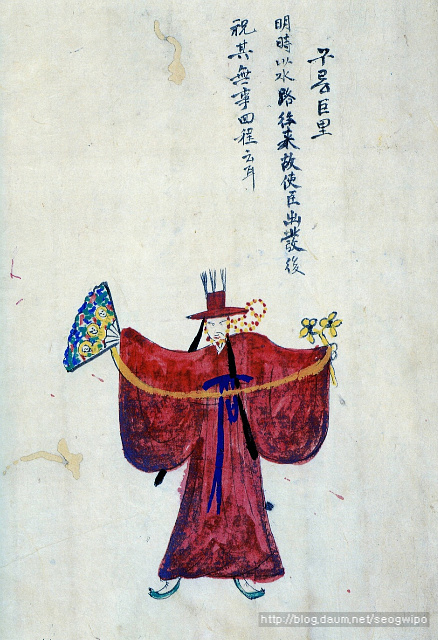 구릉巨里
明時以水路往来故使臣出發後
祝其無事回程云耳
http://blog.daum.net/seogwipo